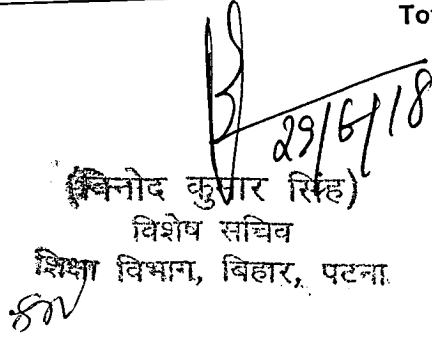 To
29/6/18
(विनोद कुमार सिंह)
विशेष सचिव
शिक्षा विभाग, बिहार, पटना